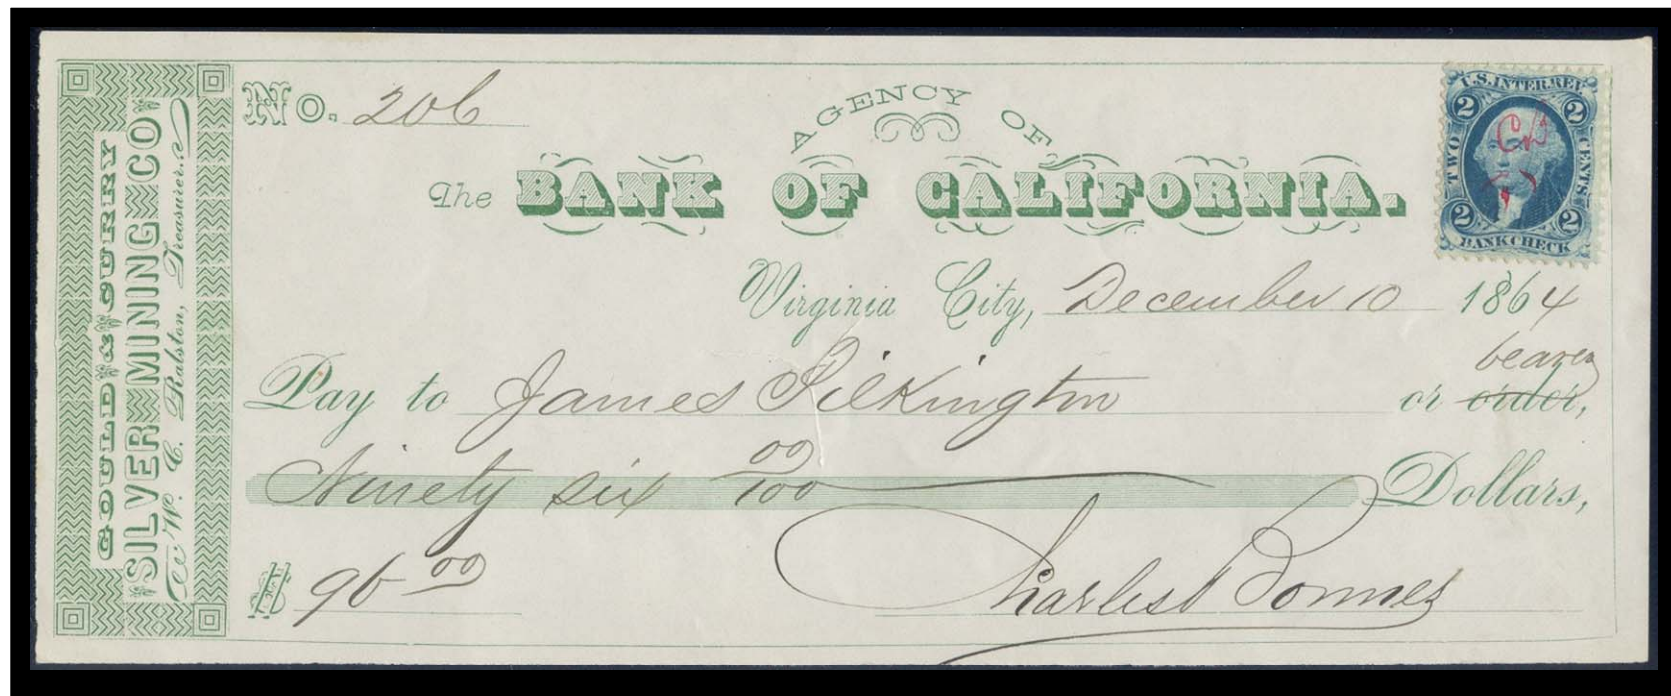 GOULD & CURRY
SILVER MINING CO.
To W. C. Ralston, Treasurer.
No. 206
AGENCY OF
The BANK OF CALIFORNIA.
U.S. INTER. REV.
2 2
TWO CENTS
2 2
BANK CHECK
Virginia City, December 10 1864
bearer
Pay to James Pilkington or order,
Ninety six 00/100 Dollars,
$ 96 00
Charles Bonner